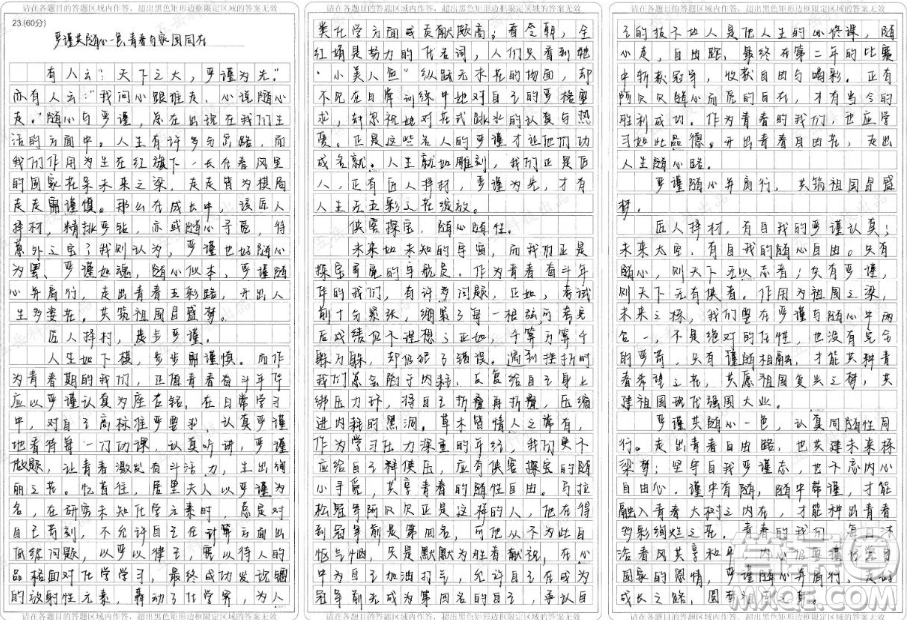 请在各题目的答题区域内作答，超出黑色矩形边框限定区域的答案无效
23.(60分)
严谨共随心一色，青春与家国同在
有人云："天下之大，严谨为先。"
亦有人云："我问心跟谁走，心说随心
走。"随心与严谨，总在出现在我们生
活的方面中。人生有许多与岔路，而
我们作为生在红旗下，长在春风里
的国家花朵未来之梁，走走皆为棋局
走走需谨慎。那么在成长中，该匠人
择材，精挑严
意外之宝？我则认为，严谨也好随心
为男，严谨如魂，随心似本，严谨随
心并肩行，走出青春五彩路，开出人
生多姿花，共筑祖国昌盛梦。
匠人择材，是步严谨。
人生如下棋，步步需谨慎。而作
为青春期的我们，正值青春奋斗年华
应以严谨认真为座右铭，在日常学习
中，对自己高标准严要求，认真严谨
地看待每一门功课，认真听讲，严谨
做题，让青春激发奋斗活力，生出绚
丽之花。忆昔往，居里夫人以严谨为
名，在研究未知化学元素时，总是对
自己苛刻，不允许自己在计算方面出
低级问题，以严以律己，宽以待人的
品格面对化学学习，最终成功发现镭
的放射性元素，轰动了化学界，为人
类化学方面成贡献颇高；看今朝，全
红婵是努力的代名词，人们只看到她
"小美人鱼"纵跃无水花的场面，却
不见在日常训练中她对自己的严格要
求，
爱。正是这些名人的严谨才让他们功
成名就。人生就如雕刻，我们正是匠
人，正有匠人择材，严谨为先，才有
人生五彩之花绽放。
侠客探宝，随心随性。
未来如未知的寻宝，而我们正是
探宝
年的我们，有许多问题，正如，考试
前十分紧张，绷紧了每一根弦可考完
后成绩仍不理想之正如，千算万算千
躲万躲，却仍错了错误。遇到挫折时
我们总会陷于内耗，反复给自己身上
绑压力环，将自己折叠再折叠，压缩
进内耗的黑洞。草木皆情人之常有，
作为学习压力深重的年轻，我们更不
应给自己释俱压，应有侠客探宝的随
小手宽，共享青春的随性自由。马拉
松冠军阿贝贝正是这样的人，他在得
到冠军前是第四名，可他从不为此自
怯与恼，只是默默为胜者献祝，在心
中为自己加油打气，允许自己在成为
冠军前先成为第四名的自己，承认自
己的技不如人是他人生的必修课，随
心走，自由路，最终在第二年的比赛
中斩获冠军，收获自由与喝彩。正有
阿贝贝随心而废的自在，才有当今的
胜利成功。作为青春的我们，也应学
习如此品德。开出青春自由花，走出
人生随心路。
严谨随心并肩行，共筑祖国昌盛
梦。
匠人择材，有自我的严谨认真；
未来太空，有自我的随心自由。失有
随心，则天下无以志者；失有严谨，
则天下无有侠者。作为祖国之梁，
未来之栋，我们要在严谨与随心中两
合一，不是绝对的任性，也没有完全
的严苛，只有谨随相融，才能共种青
春希望之花，共愿祖国复兴之辉，共
建祖国现代强国大业。
严谨共随心一色，认真同随性同
行。走出青春自由路，也共建未来栋
梁梦；坚守自我严谨态，也不忘内心
自由心，谨中有随，随中带谨，才能
融入青春大树之内在，才能种出青春
多彩绚烂之花。青春的我们，每一
沿着风共享和平
国家的恩情，严谨随心并肩行，走
成长之路，
请在各题目的答题区域内作答，超出黑色矩形边框限定区域的答案无效
MXQE.COM